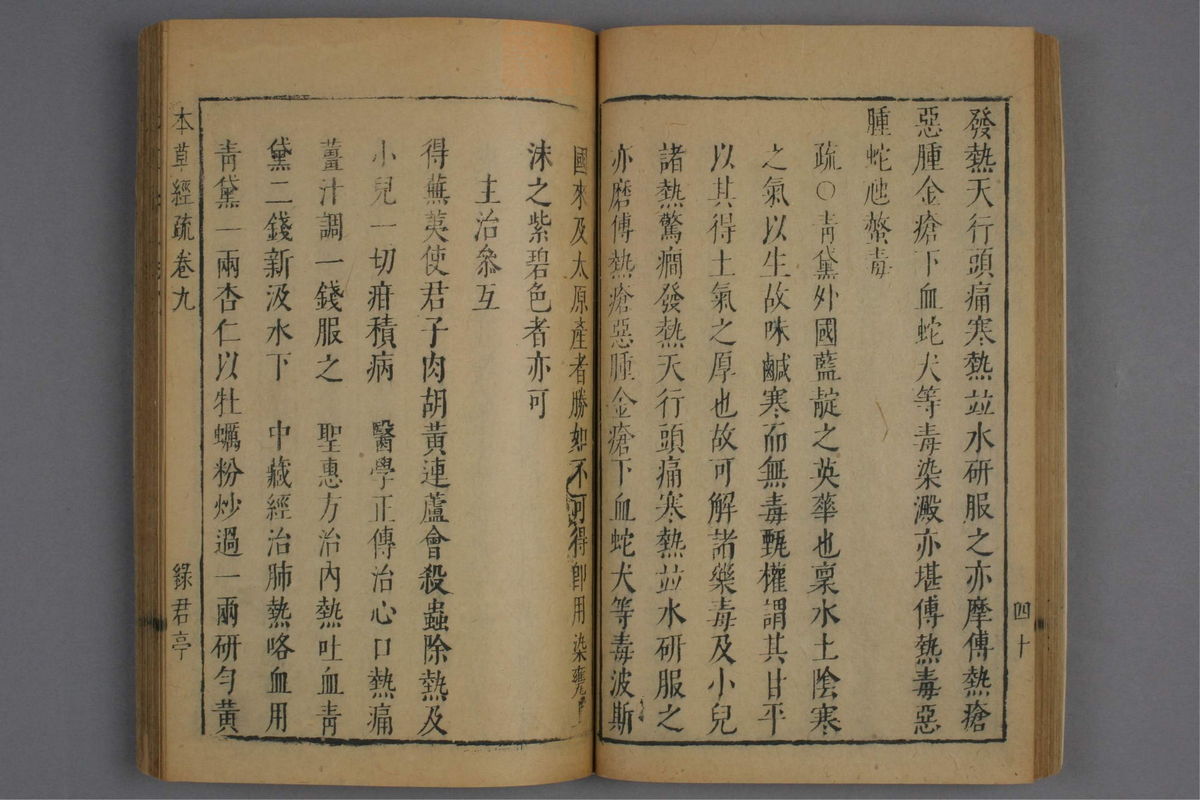 發熱天行頭痛寒熱並水研服之亦摩傅熱瘡
惡腫金瘡下血蛇犬等毒染澱亦堪傅熱毒惡
腫蛇虺螫毒
疏○靑黛外國藍靛之英華也稟水土陰寒
之氣以生故味鹹寒而無毒甄權謂其甘平
以其得土氣之厚也故可解諸藥毒及小兒
諸熱驚癇發熱天行頭痛寒熱並水研服之
亦磨傅熱瘡惡腫金瘡下血蛇犬等毒波斯
四十
國來及太原產者勝如不可得卽用染甕
沫之紫碧色者亦可
主治叅互
得蕪荑使君子肉胡黃連蘆會殺蟲除熱及
小兒一切疳積病　醫學正傳治心口熱痛
薑汁調一錢服之　聖惠方治內熱吐血靑
黛二錢新汲水下　中藏經治肺熱咯血用
靑黛一兩杏仁以牡蠣粉炒過一兩硏勻黃
本草經疏卷九
綠君亭